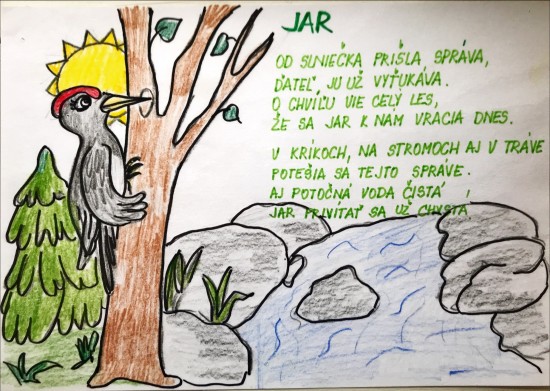 JAR
OD SLNIEČKA PRIŠLA SPRÁVA,
ĎATEĽ JU UŽ VYŤUKÁVA.
O CHVÍĽU VIE CELÝ LES,
ŽE SA JAR K NÁM VRACIA DNES.
V KRÍKOCH, NA STROMOCH AJ V TRÁVE
POTEŠIA SA TEJTO SPRÁVE.
AJ POTOČNÁ VODA ČISTÁ,
JAR PRIVÍTAŤ SA UŽ CHYSTÁ